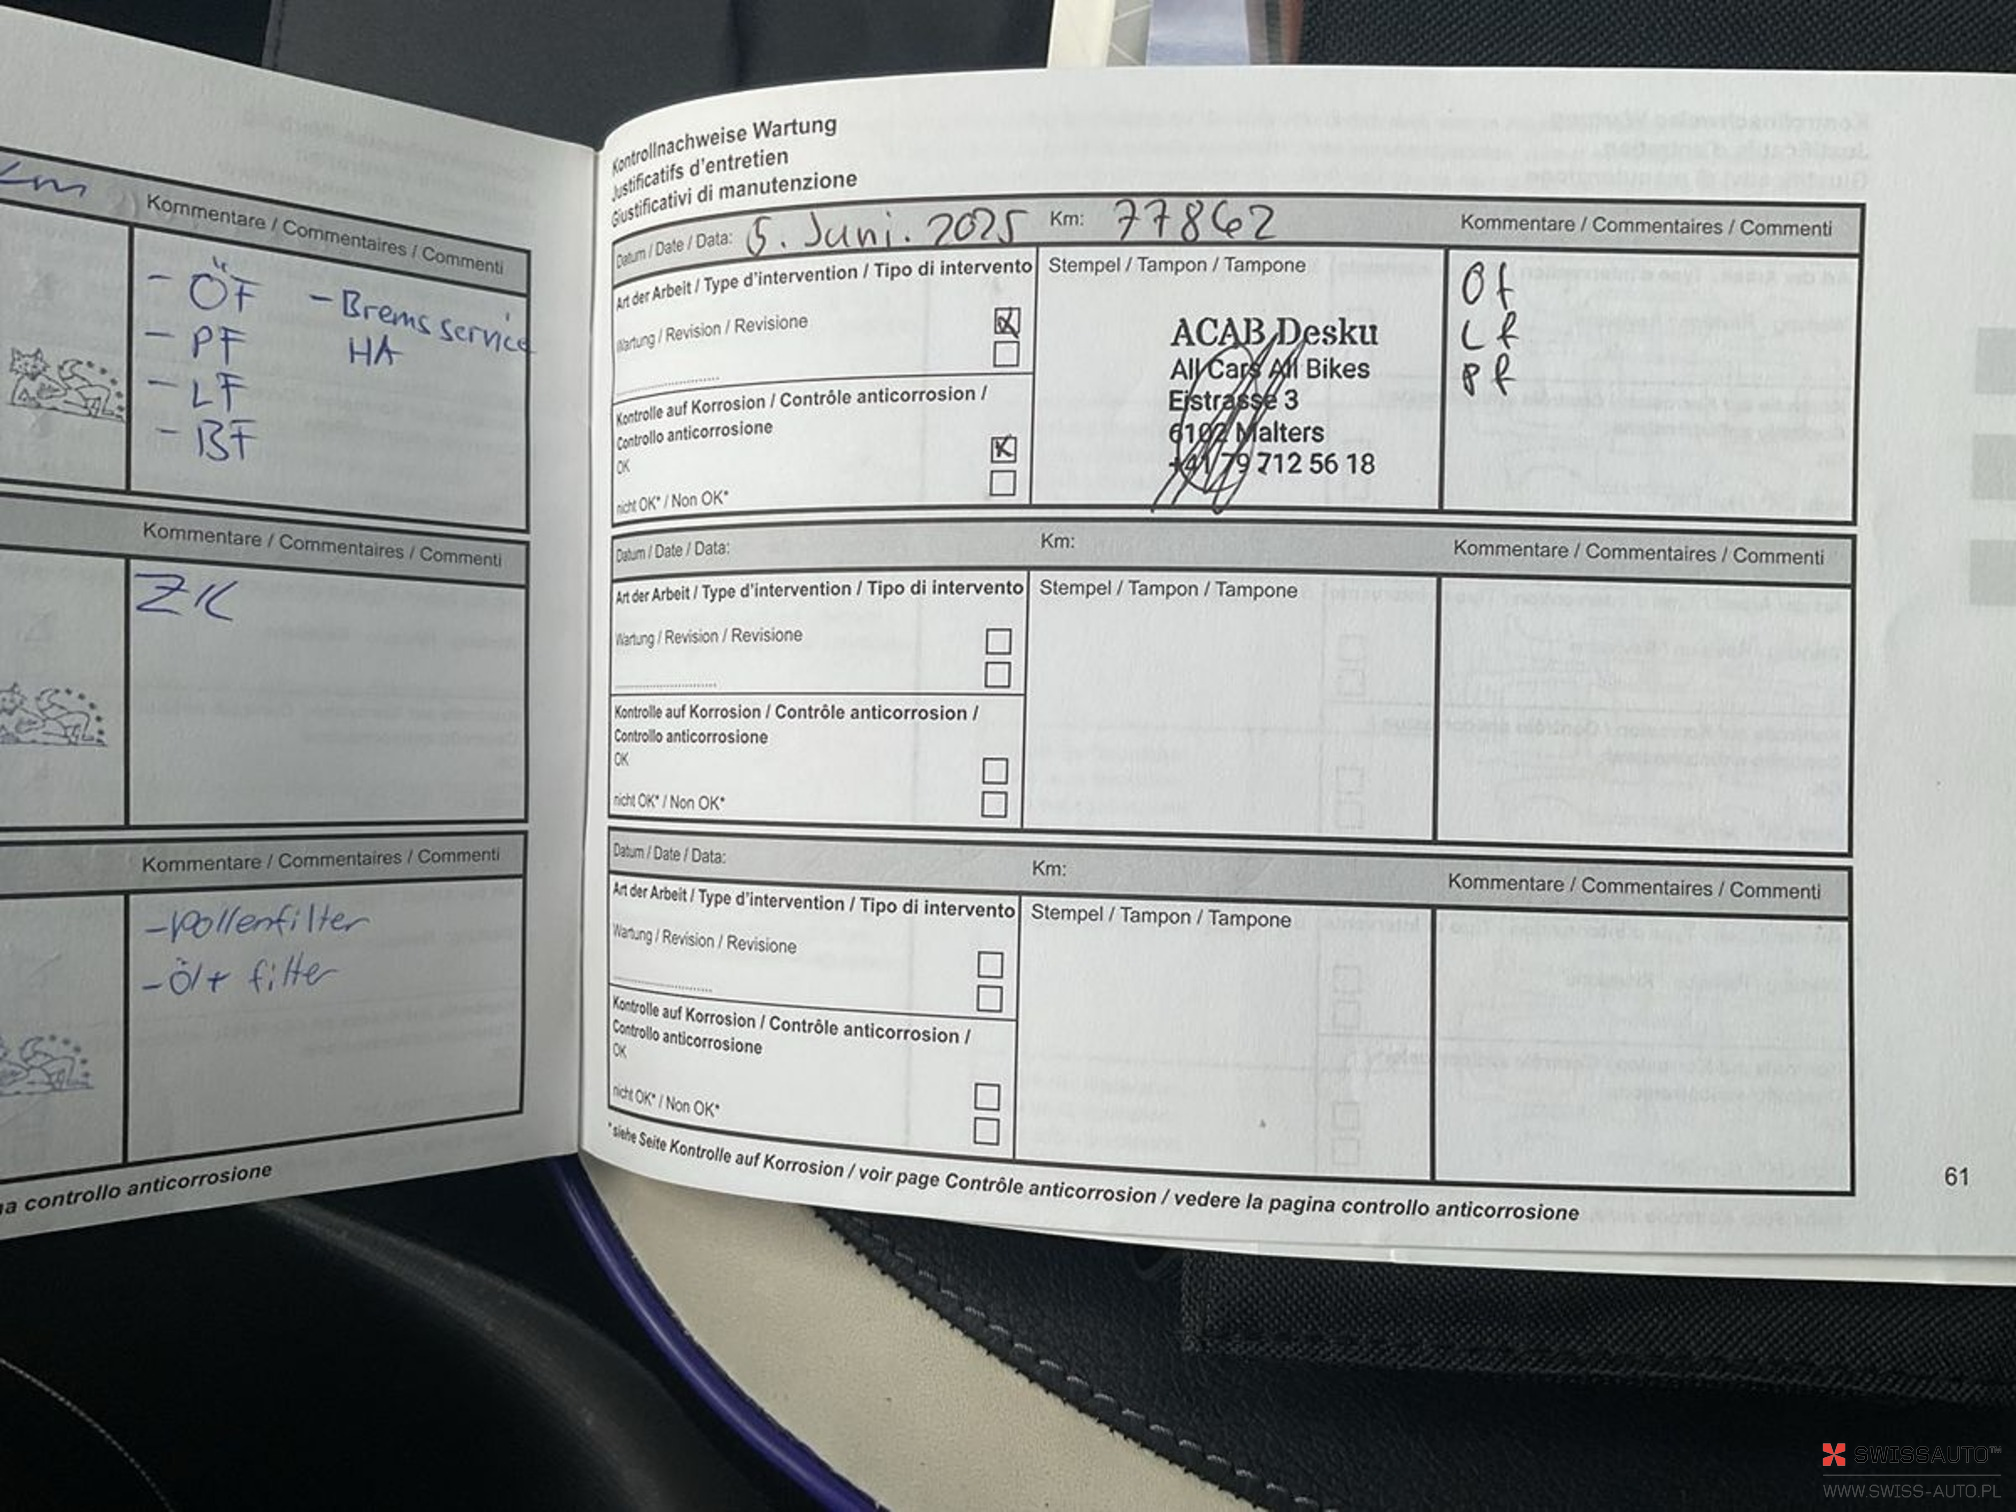 Km
Kommentare / Commentaires / Commenti
- ÖF - Bremsservice
- PF HA
- LF
- BF
Kommentare / Commentaires / Commenti
ZK
Kommentare / Commentaires / Commenti
- Pollenfilter
- Öl + filter
na controllo anticorrosione
Kontrollnachweise Wartung
Justificatifs d'entretien
Giustificativi di manutenzione
Datum / Date / Data: 5. Juni. 2025 Km: 77862 Kommentare / Commentaires / Commenti
Art der Arbeit / Type d'intervention / Tipo di intervento Stempel / Tampon / Tampone
Wartung / Revision / Revisione
Kontrolle auf Korrosion / Contrôle anticorrosion /
Controllo anticorrosione
OK
nicht OK* / Non OK*
ACAB Desku
All Cars All Bikes
Eistrasse 3
6102 Malters
+41 79 712 56 18
Öf
Lf
Pf
Datum / Date / Data: Km: Kommentare / Commentaires / Commenti
Art der Arbeit / Type d'intervention / Tipo di intervento Stempel / Tampon / Tampone
Wartung / Revision / Revisione
Kontrolle auf Korrosion / Contrôle anticorrosion /
Controllo anticorrosione
OK
nicht OK* / Non OK*
Datum / Date / Data: Km: Kommentare / Commentaires / Commenti
Art der Arbeit / Type d'intervention / Tipo di intervento Stempel / Tampon / Tampone
Wartung / Revision / Revisione
Kontrolle auf Korrosion / Contrôle anticorrosion /
Controllo anticorrosione
OK
nicht OK* / Non OK*
*siehe Seite Kontrolle auf Korrosion / voir page Contrôle anticorrosion / vedere la pagina controllo anticorrosione
61
SWISSAUTO™
WWW.SWISS-AUTO.PL